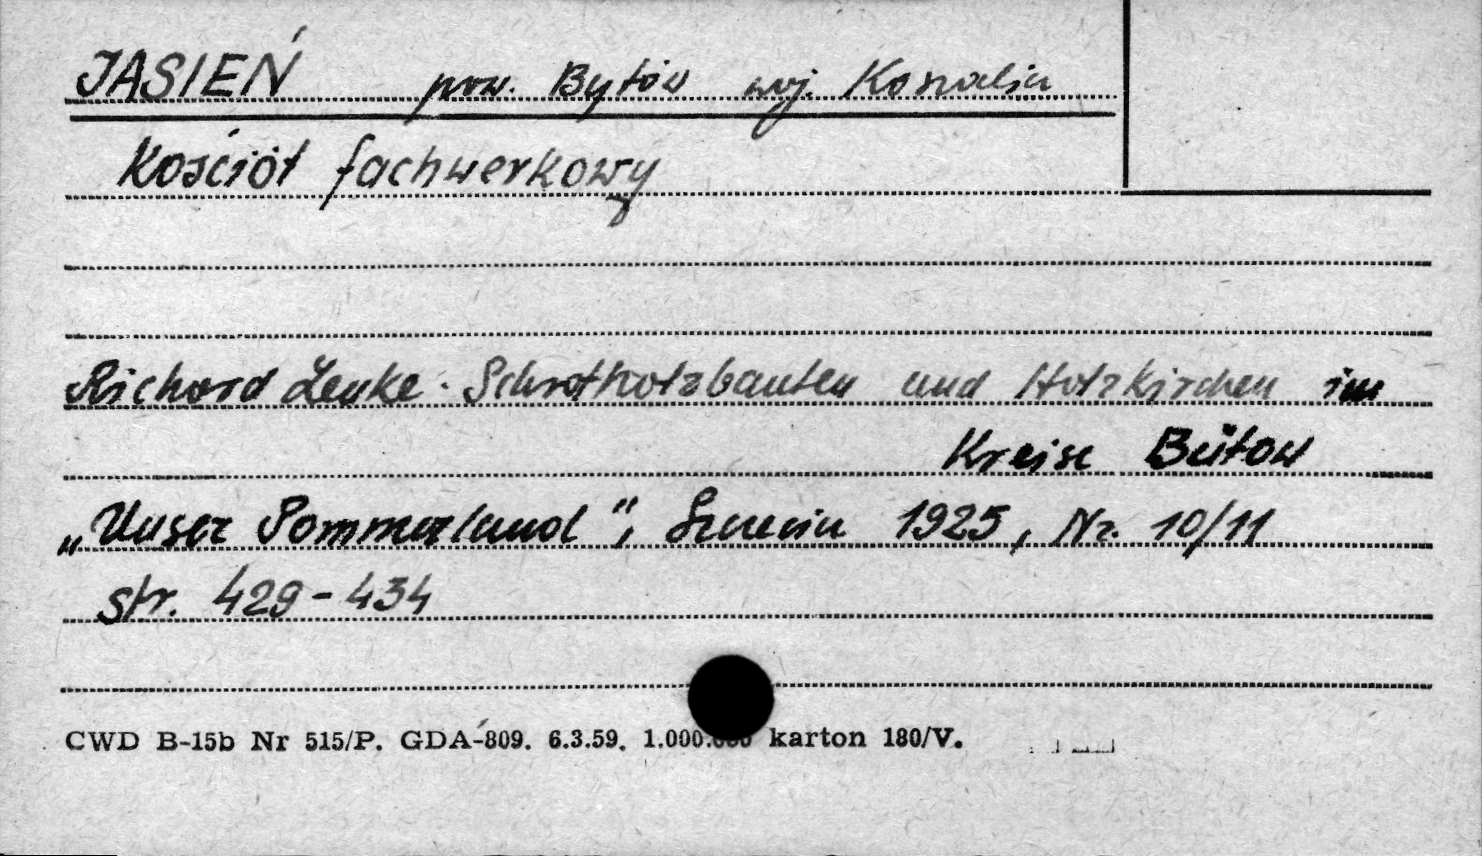 JASIEŃ pow. Bytów woj. Koszalin
Kościół fachwerkowy
Richard Zenke. Schrotholzbauten und Holzkirchen im
Kreise Bütow
„Unser Pommerland", Szczecin 1925, Nr. 10/11
str. 429-434
CWD B-15b Nr 515/P. GDA-809. 6.3.59. 1.000.000 karton 180/V.